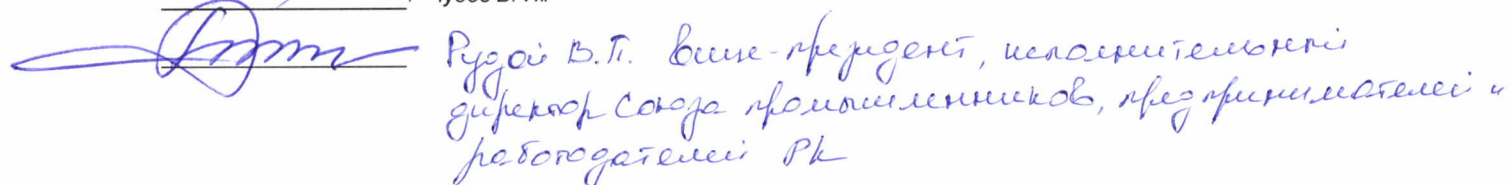 Рудой В.П. Вице-президент, исполнительный
директор Союза промышленников, предпринимателей и
работодателей РК